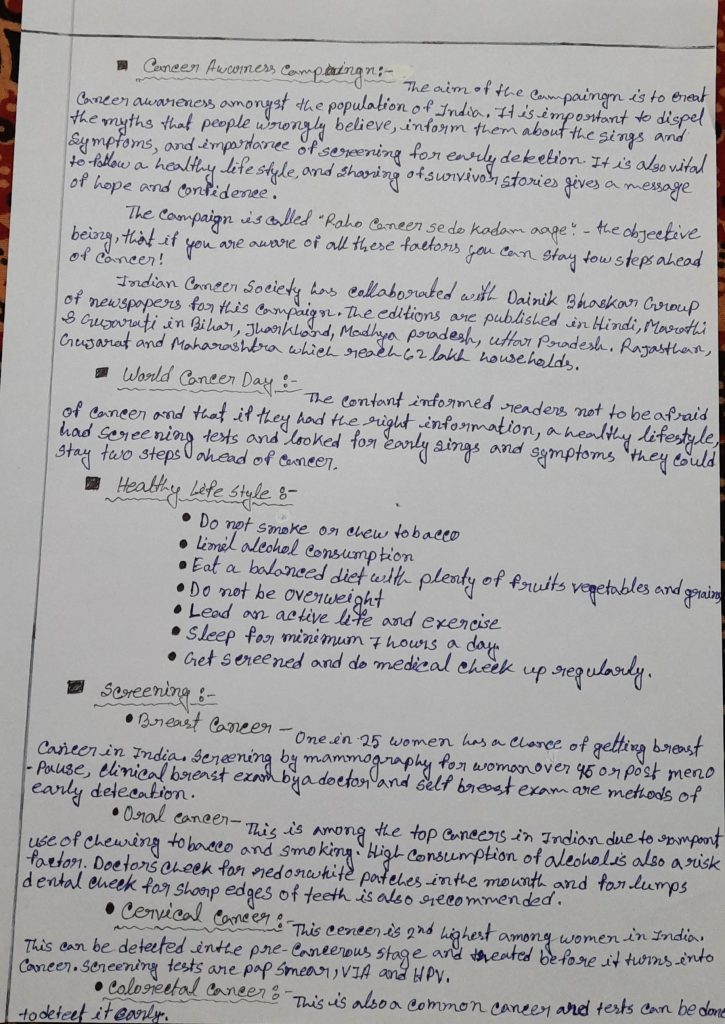 Cancer Awarness Campaingn:-
The aim of the Campaingn is to creat
Cancer awareness amongst the population of India. It is important to dispel
the myths that people wrongly believe, inform them about the sings and
Symptoms, and importance of screening for early detection. It is also vital
to follow a healthy life style, and sharing of survivor stories gives a message
of hope and confidence.
The Campaign is called "Raho Cancer se do Kadam aage". - the objective
being, that if you are aware of all these factors you can stay tow steps ahead
of Cancer!
Indian Cancer Society has collaborated with Dainik Bhaskar Group
of newspapers for this campaign. The editions are published in Hindi, Marathi
& Gujarati in Bihar, Jharkhand, Madhya pradesh, uttar Pradesh. Rajasthan,
Gujarat and Maharashtra which reach 62 lakh households.
World Cancer Day :-
The contant informed readers not to be afraid
of cancer and that if they had the right information, a healthy lifestyle,
had screening tests and looked for early sings and symptoms they could
stay two steps ahead of cancer.
Healthy Life Style :-
• Do not smoke or chew tobacco
• Limit alcohol consumption
• Eat a balanced diet with plenty of fruits vegetables and grains
• Do not be overweight
• Lead an active life and exercise
• Sleep for minimum 7 hours a day.
• Get screened and do medical check up regularly.
Screening :-
• Breast Cancer - One in 25 women has a chance of getting breast
Cancer in India. Screening by mammography for woman over 45 or post meno
-Pause, Clinical breast exam by a doctor and self breast exam are methods of
early detecation.
• Oral cancer- This is among the top cancers in Indian due to rampant
use of chewing tobacco and smoking. High Consumption of alcohol is also a risk
factor. Doctors check for red or white patches in the mounth and for lumps
dental check for sharp edges of teeth is also recommended.
• Cervical Cancer :- This cencer is 2nd highest among women in India.
This can be detected in the pre-Cancerous stage and treated before it turns into
Cancer. Screening tests are pap smear, VIA and HPV.
• Colorectal cancer :- This is also a common cancer and tests can be done
to detect it early.